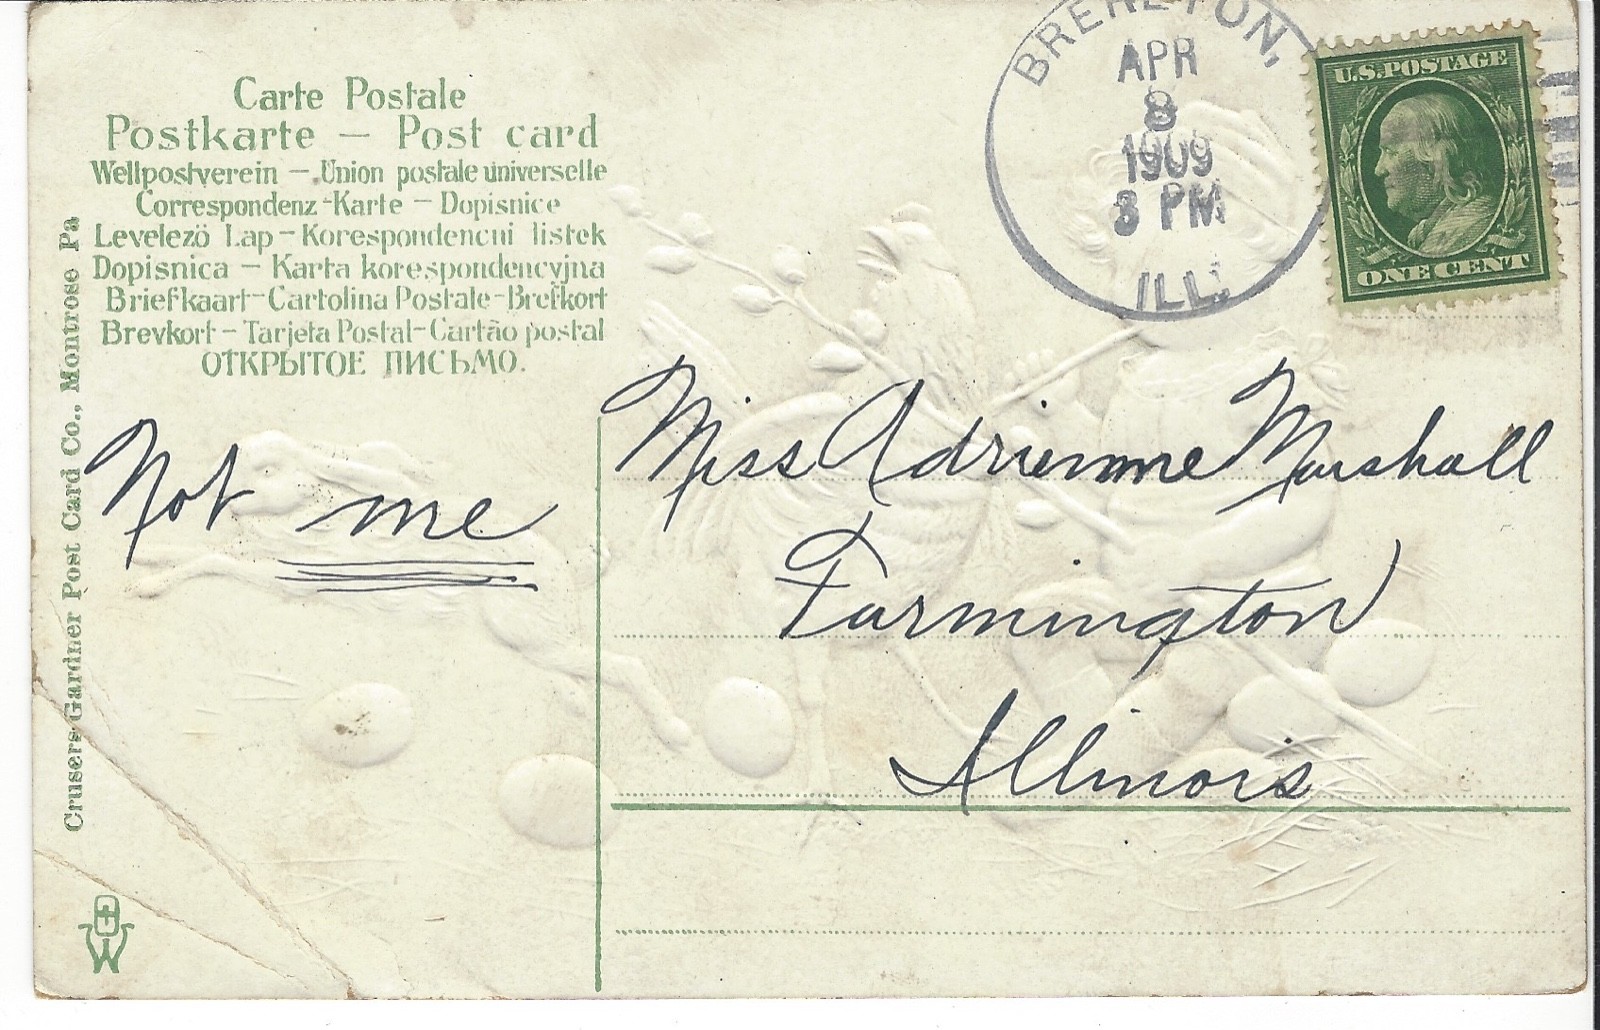 Carte Postale
Postkarte — Post card
Weltpostverein — Union postale universelle
Correspondenz-Karte — Dopisnice
Levelező Lap — Korespondencni listek
Dopisnica — Karta korespondencyjna
Briefkaart-Cartolina Postale-Brefkort
Brevkort — Tarjeta Postal-Cartão postal
ОТКРЫТОЕ ПИСЬМО.
Crusers-Gardner Post Card Co., Montrose Pa
BREHETON,
APR
8
1909
3 PM
ILL.
U.S. POSTAGE
ONE CENT
Not me
Miss Adrienne Marshall
Farmington
Illinois